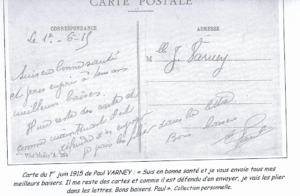 CARTE POSTALE
CORRESPONDANCE
ADRESSE
Le 1er-6-15
Mlle J. Varney
Suis en bonne santé
et vous envoie tous mes
meilleurs baisers.
Il me reste des cartes et
comme maintenant il est
défendu d'en envoyer
je vais les plier dans les lettres
Bons baisers
Paul
Carte du 1er juin 1915 de Paul VARNEY : « Suis en bonne santé et je vous envoie tous mes
meilleurs baisers. Il me reste des cartes et comme il est défendu d'en envoyer, je vais les plier
dans les lettres. Bons baisers. Paul ». Collection personnelle.